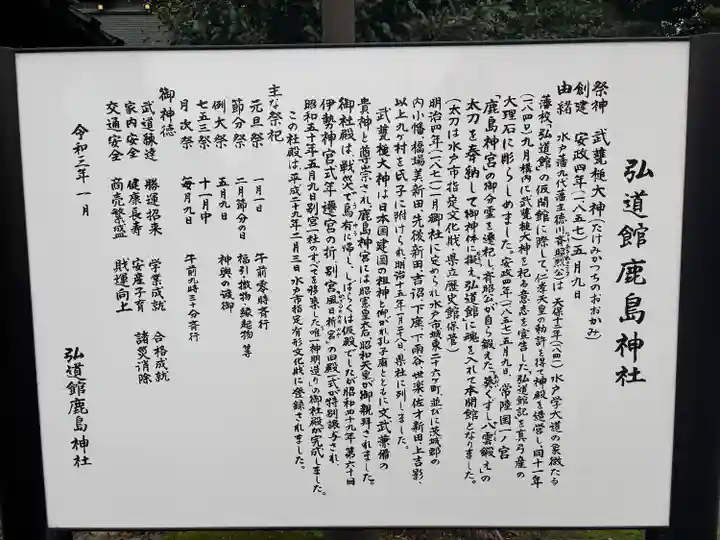 弘道館鹿島神社
祭神 武甕槌大神(たけみかつちのおおかみ)
創建 安政四年(一八五七)五月九日
由緒 水戸藩九代藩主徳川斉昭(烈)公は、天保十二年(一八四一)水戸学大道の象徴たる
藩校、弘道館の仮開館に際して、仁孝天皇の勅許を得て神殿を造営し、同十一年
(一八四〇)九月構内に武甕槌大神を祀る意志を宣告した。弘道館記を真弓産の
大理石に彫らしめました。安政四年(一八五七)五月九日、常陸国一ノ宮
「鹿島神宮」の御分霊を遷祀し、斉昭公が自ら鍛えた、葵くずし八雲鍛えの
太刀を奉納して御神体に擬え弘道館に魂を入れて本開館となりました。
(太刀は水戸市指定文化財、県立歴史館保管)
明治四年(一八七一)二月郷社に定められ水戸市城東二十六ケ町並びに茨城郡の
内小幡、橋場美新田先後新田吉沼下座、下雨谷世楽佐才新田上吉影、
以上九ケ村を氏子に附けられ明治十五年一月二十八日県社に列しました。
武甕槌大神は日本国建国の祖神と仰がれ孔子廟とともに文武兼備の
貴神と尊崇され、鹿島神宮には昭憲皇太后、昭和天皇が御親拜されました。
御社殿は、戦災で烏有に帰し、しばらくは仮殿でしたが昭和四十九年第六十回
伊勢神宮式年遷宮の折、別宮「風日祈宮」の旧殿一式が特別譲与され、
昭和五十年五月九日別宮一社のすべてを移築した唯一神明造りの御社殿が完成しました。
この社殿は、平成二十九年二月三日水戸市指定有形文化財に登録されました。
主な祭祀
元旦祭 一月一日 午前零時斉行
節分祭 二月節分の日 福引撒物縁起物等
例大祭 五月九日 神輿の渡御
七五三祭 十一月中
月次祭 毎月九日 午前九時三十分斉行
御神徳
武道練達 勝運招来 学業成就 合格成就
家内安全 健康長寿 安産子育 諸災消除
交通安全 商売繁盛 財運向上
令和三年一月
弘道館鹿島神社